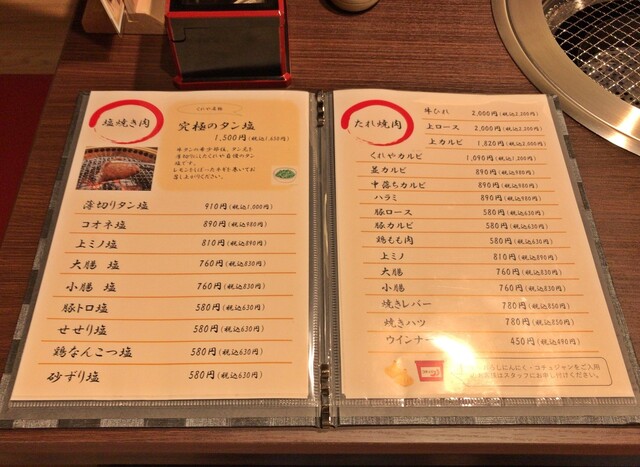 塩焼き肉
くれや名物
究極のタン塩
1,500円(税込1,650円)
塩です。
薄切りタン塩 910円(税込1,000円)
コオネ塩 890円(税込980円)
上ミノ塩 810円(税込890円)
大腸 塩 760円(税込830円)
小腸 塩 760円(税込830円)
豚トロ塩 580円(税込630円)
せせり塩 580円(税込630円)
鶏なんこつ塩 580円(税込630円)
砂ずり塩 580円(税込630円)
たれ焼肉
牛ひれ 2,000円(税込2,200円)
上ロース 2,000円(税込2,200円)
上カルビ 1,820円(税込2,000円)
くれやカルビ 1,090円(税込1,200円)
並カルビ 890円(税込980円)
中落ちカルビ 890円(税込980円)
ハラミ 890円(税込980円)
豚ロース 580円(税込630円)
豚カルビ 580円(税込630円)
鶏もも肉 580円(税込630円)
上ミノ 810円(税込890円)
大腸 760円(税込830円)
小腸 760円(税込830円)
焼きレバー 780円(税込850円)
焼きハツ 780円(税込850円)
ウインナー 450円(税込490円)
ろしにんにく・コチュジャンをご入用
はスタッフにお申し付けください。